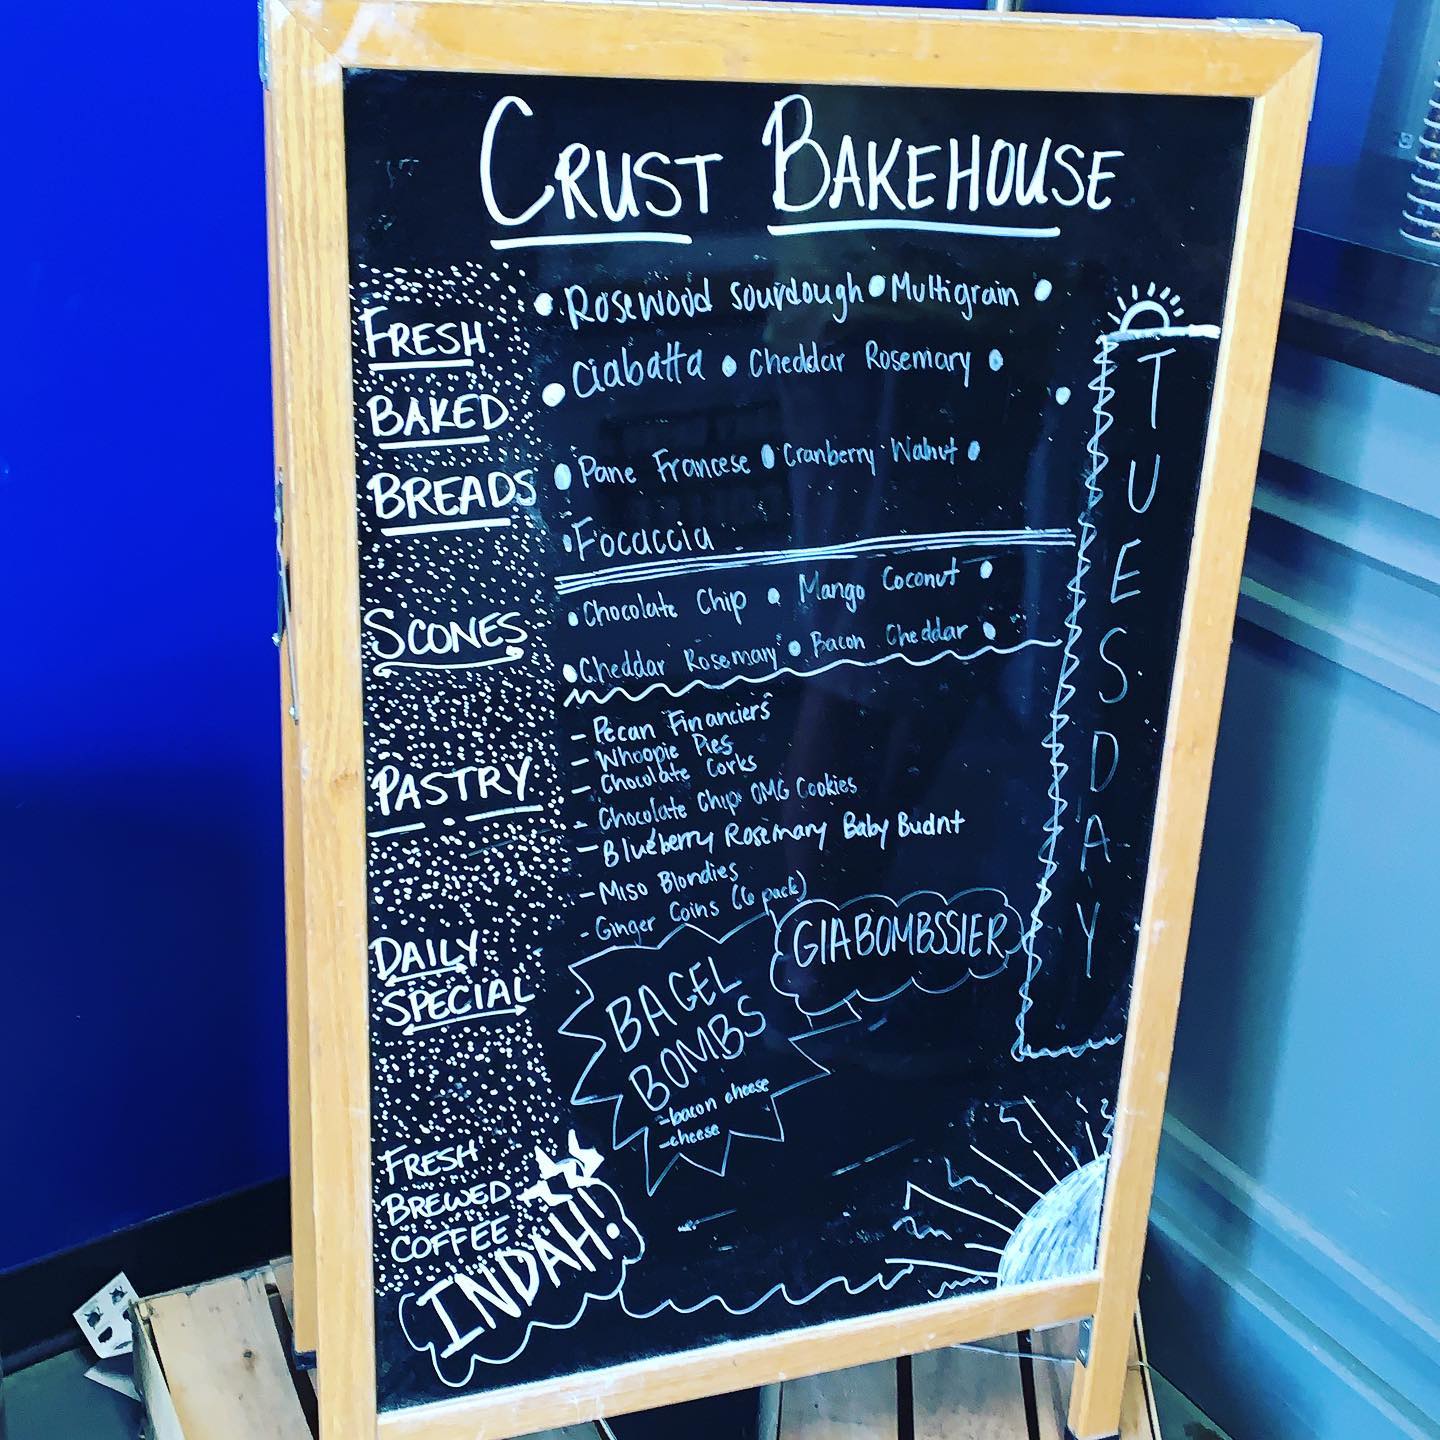 CRUST BAKEHOUSE
FRESH
BAKED
BREADS
Rosewood Sourdough • Multigrain •
• Ciabatta • Cheddar Rosemary •
• Pane Francese • Cranberry Walnut •
• Focaccia
SCONES
• Chocolate Chip • Mango Coconut •
• Cheddar Rosemary • Bacon Cheddar •
PASTRY
- Pecan Financiers
- Whoopie Pies
- Chocolate Corks
- Chocolate Chip OMG Cookies
- Blueberry Rosemary Baby Budnt
- Miso Blondies
- Ginger Coins (6 pack)
DAILY
SPECIAL
BAGEL
BOMBS
- bacon cheese
- cheese
GIABOMBSSIER
FRESH
BREWED
COFFEE
INDAH!
TUESDAY